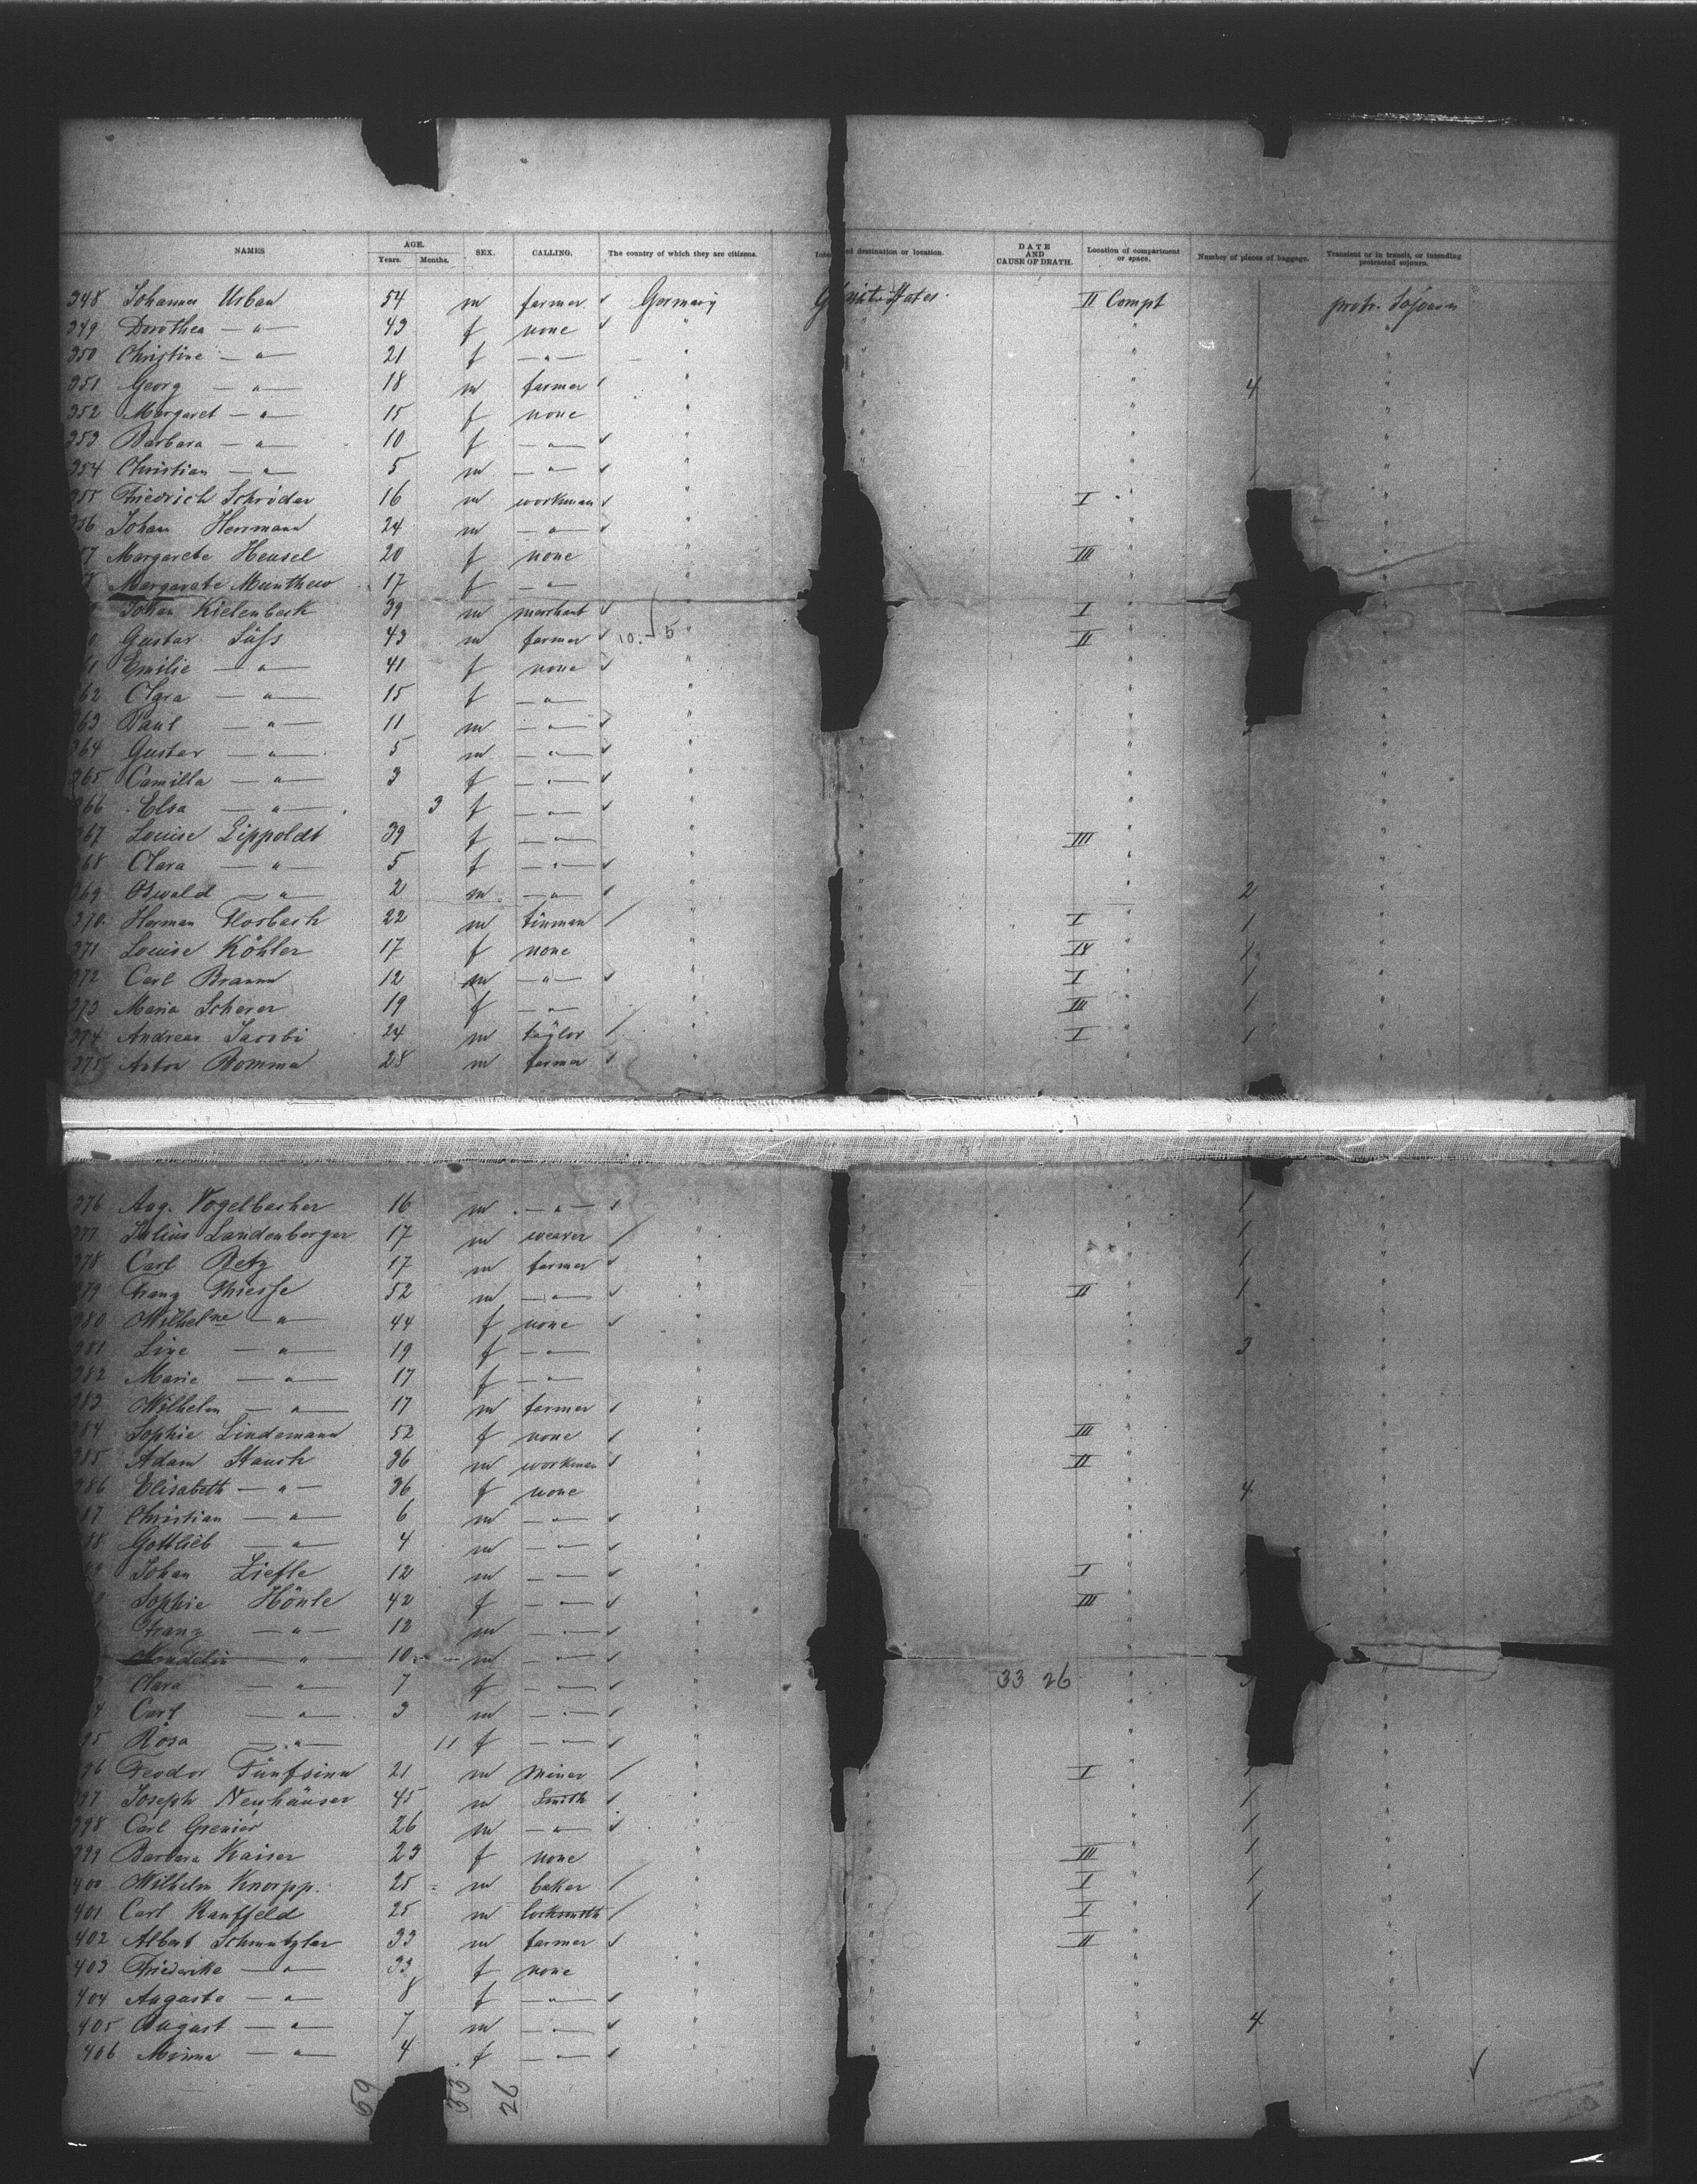 NAMES AGE. Years. Months. SEX. CALLING. The country of which they are citizens. destination or location. DATE AND CAUSE OF DEATH. Location of compartment or space. Number of pieces of baggage. Transient or in transit, or intending protracted sojourn.
348 Johannes Urban 54 m farmer Germany States II Compt protr. Sojourn
349 Dorothea — " — 43 f none " " " "
350 Christine — " — 21 f — " — " " " "
351 Georg — " — 18 m farmer " " " 4 "
352 Margaret — " — 15 f none " " " "
353 Barbara — " — 10 f — " — " " " "
354 Christian — " — 5 m — " — " " " "
355 Friedrich Schröder 16 m workman " I " "
356 Johan Herrmann 24 m — " — " " "
57 Margarete Hensel 20 f none " III " "
Margarate Munthew 17 f — " — "
Johan Kielenbeck 39 m merchant " I "
0 Gustav Süfs 43 m farmer 10. 5 " II " "
61 Emilie — " — 41 f none " " "
62 Clara — " — 15 f — " — " " "
63 Paul — " — 11 m — " — " " "
364 Gustav — " — 5 m — " — " " " "
365 Camilla — " — 3 f — " — " " " "
366 Elsa — " — 3 f — " — " " " "
367 Louise Lippoldt 39 f — " — " " III " "
368 Clara — " — 5 f — " — " " " "
369 Oswald — " — 2 m — " — " " " 2 "
370. Herman Flosbach 22 m tinman " " I " 1 "
371 Louise Köhler 17 f none " " IV " 1 "
372 Carl Braun 12 m — " — " " I " 1 "
373 Maria Scherer 19 f — " — " " III " 1 "
374 Andreas Jacobi 24 m taylor " " I " 1 "
375 Anton Romma 28 m farmer " " " "
376 Aug. Vogelbacher 16 m — " — " " 1 "
377 Julius Landenberger 17 m weaver " " " 1 "
378 Carl Retz 17 m farmer " " " 1 "
379 Franz Thiesse 52 m — " — " " II " 1 "
380 Wilhelne — " — 44 f none " " " "
381 Line — " — 19 f — " — " " " 3 "
382 Marie — " — 17 f — " — " " " "
383 Wilhelm — " — 17 m farmer " " " "
384 Sophie Lindemann 52 f none " " III " "
385 Adam Stauch 36 m workman " " II " "
386 Elisabeth — " — 36 f none " " " 4 "
87 Christian — " — 6 m — " — " " " "
88 Gottlieb — " — 4 m — " — " " "
Johan Ziefle 12 m — " — " I " "
Sophie Hönle 42 f — " — " III " "
Franz — " — 12 m — " — " " "
Wendelin — " — 10 m — " — " "
Clara — " — 7 f — " — " 33 26 " "
4 Carl — " — 3 m — " — " " "
95 Rosa — " — 11 f — " — " " "
96 Feodor Fünfsinn 21 m miner " I " "
397 Joseph Neuhäuser 45 m Smith " " " 1 "
398 Carl Grenier 26 m — " — " " " 1 "
399 Barbara Kaiser 23 f none " " III " 1 "
400 Wilhelm Knorpp. 25 m baker " " I " 1 "
401 Carl Kauffeld 25 m locksmith " " I " 1 "
402 Albert Schmutzler 33 m farmer " " II " "
403 Friederike — " — 33 f none " " " "
404 Auguste — " — 8 f — " — " " " "
405 August — " — 7 m — " — " " " 4 "
406 Minna — " — 4 f — " — " " " "
59 33 26